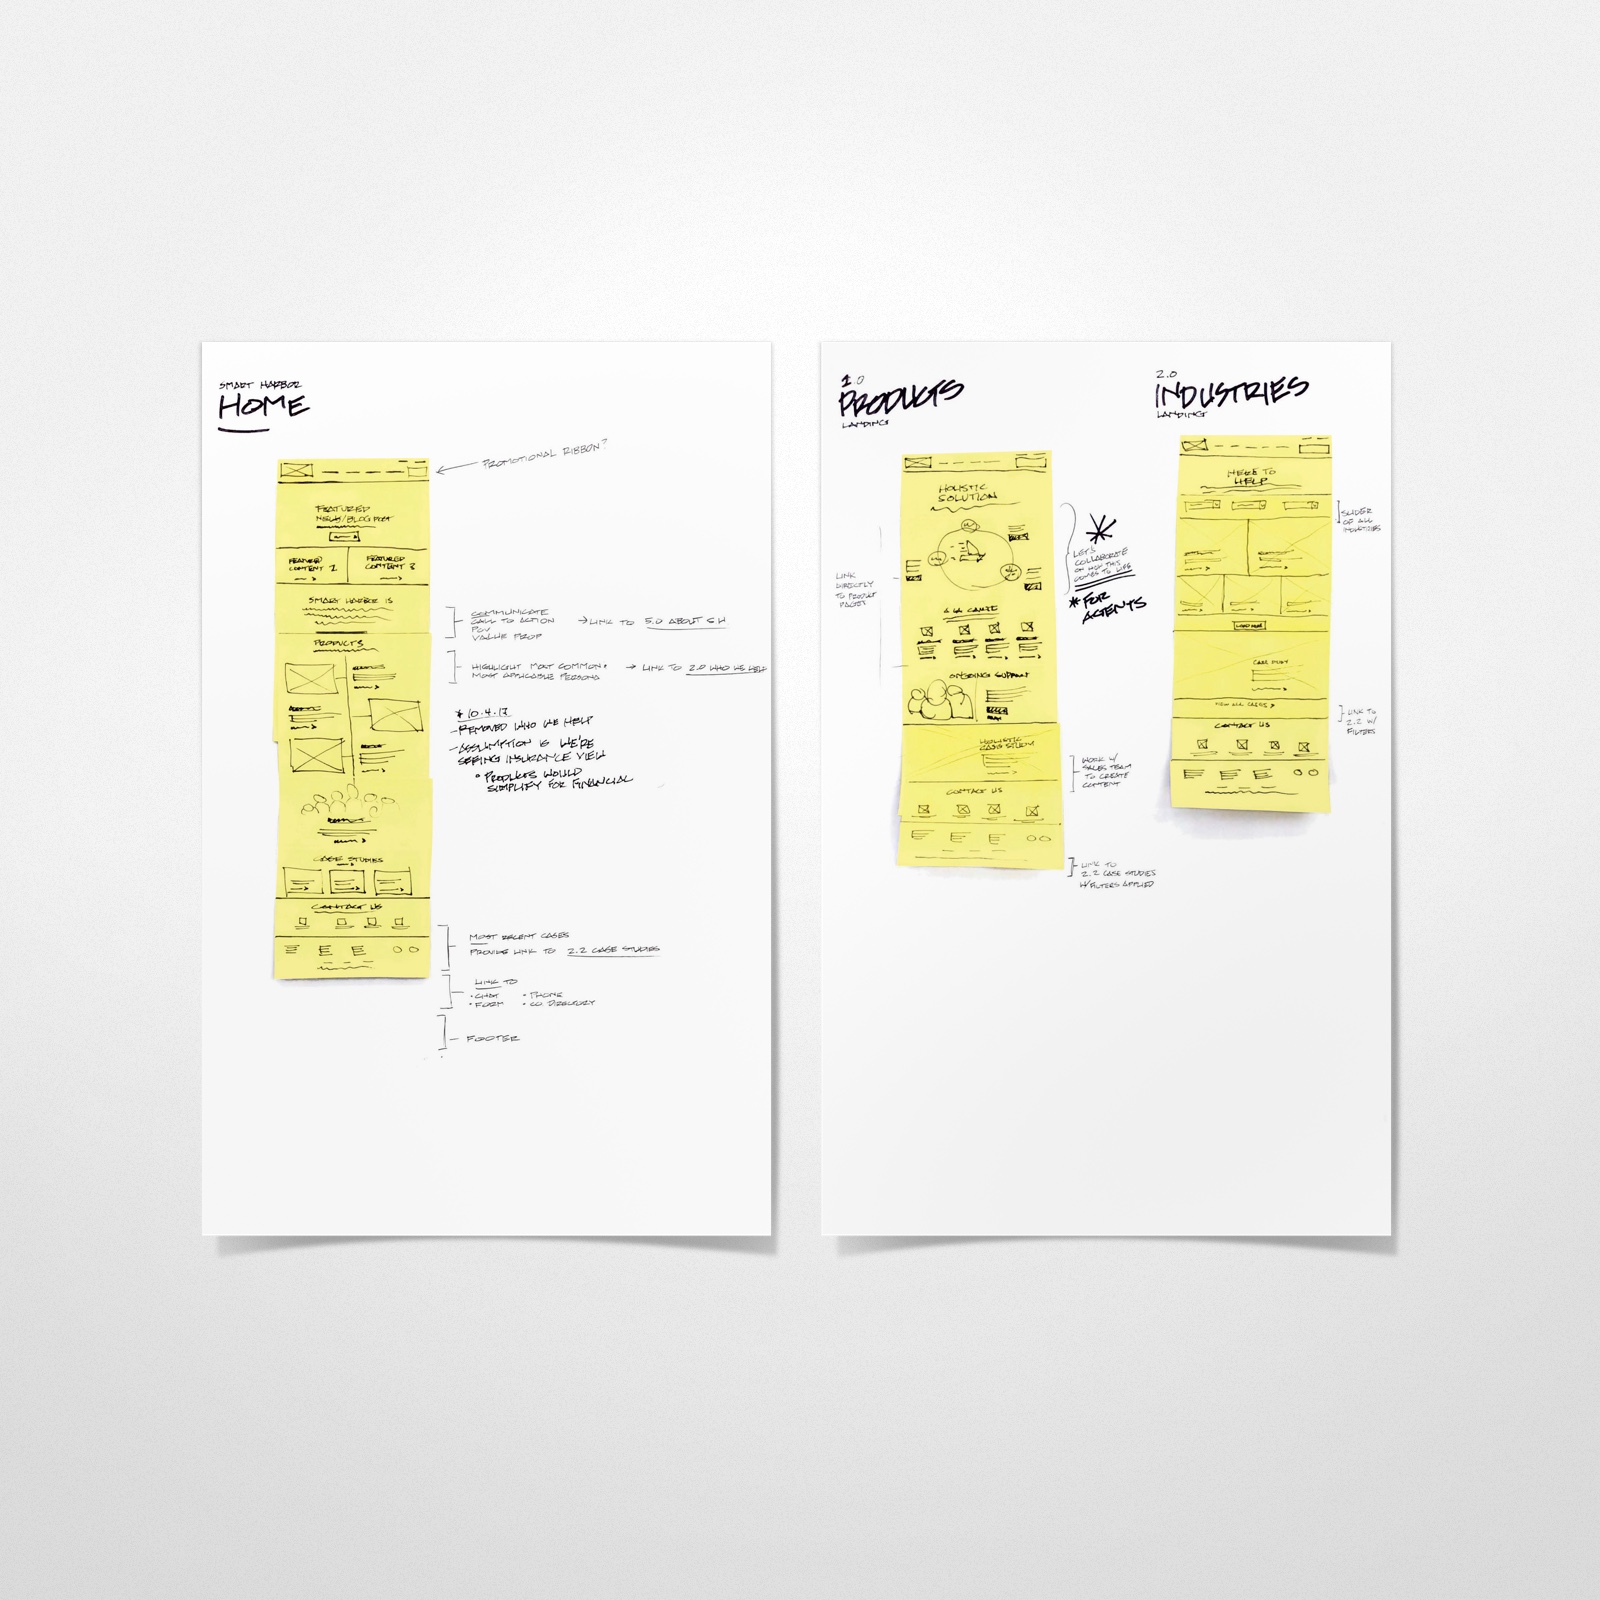 SMART HARBOR
HOME
PROMOTIONAL RIBBON?
FEATURED
NEWS/BLOG POST
FEATURED
CONTENT 2
FEATURED
CONTENT 3
SMART HARBOR IS
PRODUCTS
CASE STUDIES
CONTACT US
COMMUNICATE
CALL TO ACTION
POV
VALUE PROP
→ LINK TO 5.0 ABOUT SH
HIGHLIGHT MOST COMMON
MOST APPLICABLE PERSONA
→ LINK TO 2.0 WHO WE HELP
* 10.4.17
- REMOVED WHO WE HELP
- ASSUMPTION IS WE'RE
SEEING INSURANCE VIEW
• PRODUCTS WOULD
SIMPLIFY FOR FINANCIAL
MOST RECENT CASES
PROVIDE LINK TO 2.2 CASE STUDIES
LINK TO
• CHAT
• PHONE
• FORM
• CO. DIRECTORY
FOOTER
1.0
PRODUCTS
LANDING
HOLISTIC
SOLUTION
LINK
DIRECTLY
TO PRODUCT
PAGES
LET'S
COLLABORATE
ON HOW THIS
COMES TO LIFE
* FOR
AGENTS
A LA CARTE
ONGOING SUPPORT
HOLISTIC
CASE STUDY
CONTACT US
WORK W/
SALES TEAM
TO CREATE
CONTENT
LINK TO
2.2 CASE STUDIES
W/FILTERS APPLIED
2.0
INDUSTRIES
LANDING
HERE TO
HELP
SLIDER
OF ALL
INDUSTRIES
LOAD MORE
CASE STUDY
VIEW ALL CASES >
CONTACT US
LINK TO
2.2 W/
FILTERS